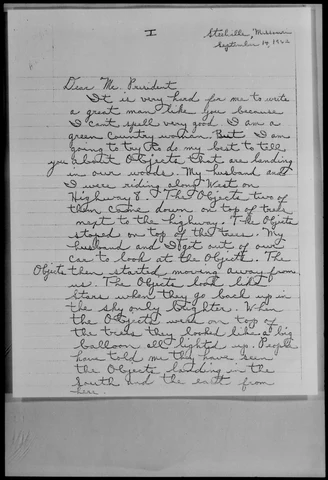 I
Steelville, Missouri
September 19, 1966
Dear Mr. President
It is very hard for me to write
a great man like you because
I can't spell very good I am a
green country woman. But I am
going to try to do my best to tell
you about Objects that are landing
in our woods. My husband and
I were riding along West on
Highway 8. The Objects two of
them came down on top of trees
next to the highway. The Objects
stoped on top of the trees. My
husband and I got out of our
car to look at the Objects. The
Objects then started moving away from
us. The Objects look like
stars when they go back up in
the sky only brighter. When
the Objects were on top of
the trees they looked like a big
balloon all lighted up. People
have told me they have seen
the Objects landing in the
South and the east from
here.